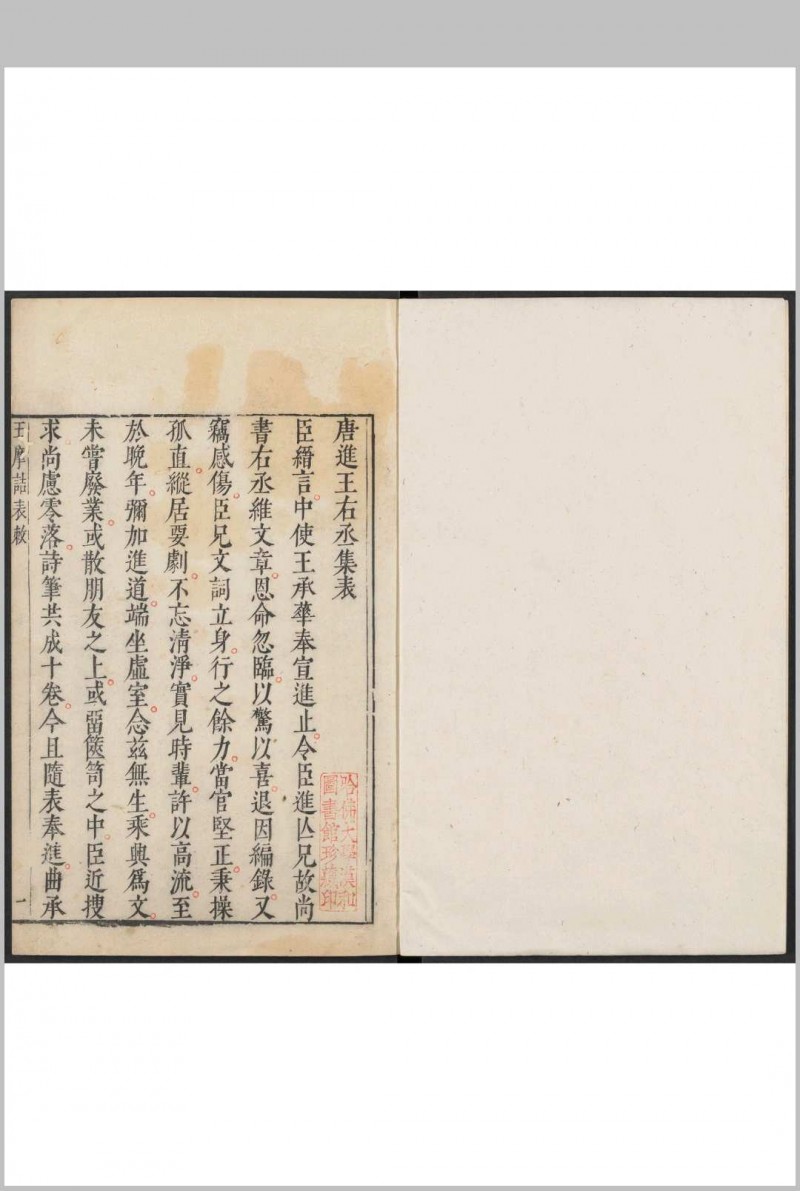 唐進王右丞集表
臣縉言。中使王承華奉宣進止。令臣進亾兄故尚
書右丞維文章。恩命忽臨。以驚以喜。退因編錄。又
竊感傷。臣兄文詞立身。行之餘力。當官堅正。秉操
孤直。縱居要劇。不忘清淨。實見時輩。許以高流。至
於晚年。彌加進道。端坐虛室。念茲無生。乘興爲文。
未嘗廢業。或散朋友之上。或畱篋笥之中。臣近搜
求尚慮零落。詩筆共成十卷。今且隨表奉進。曲承
王摩詰表敕
一
哈佛大學漢和
圖書館珍藏印